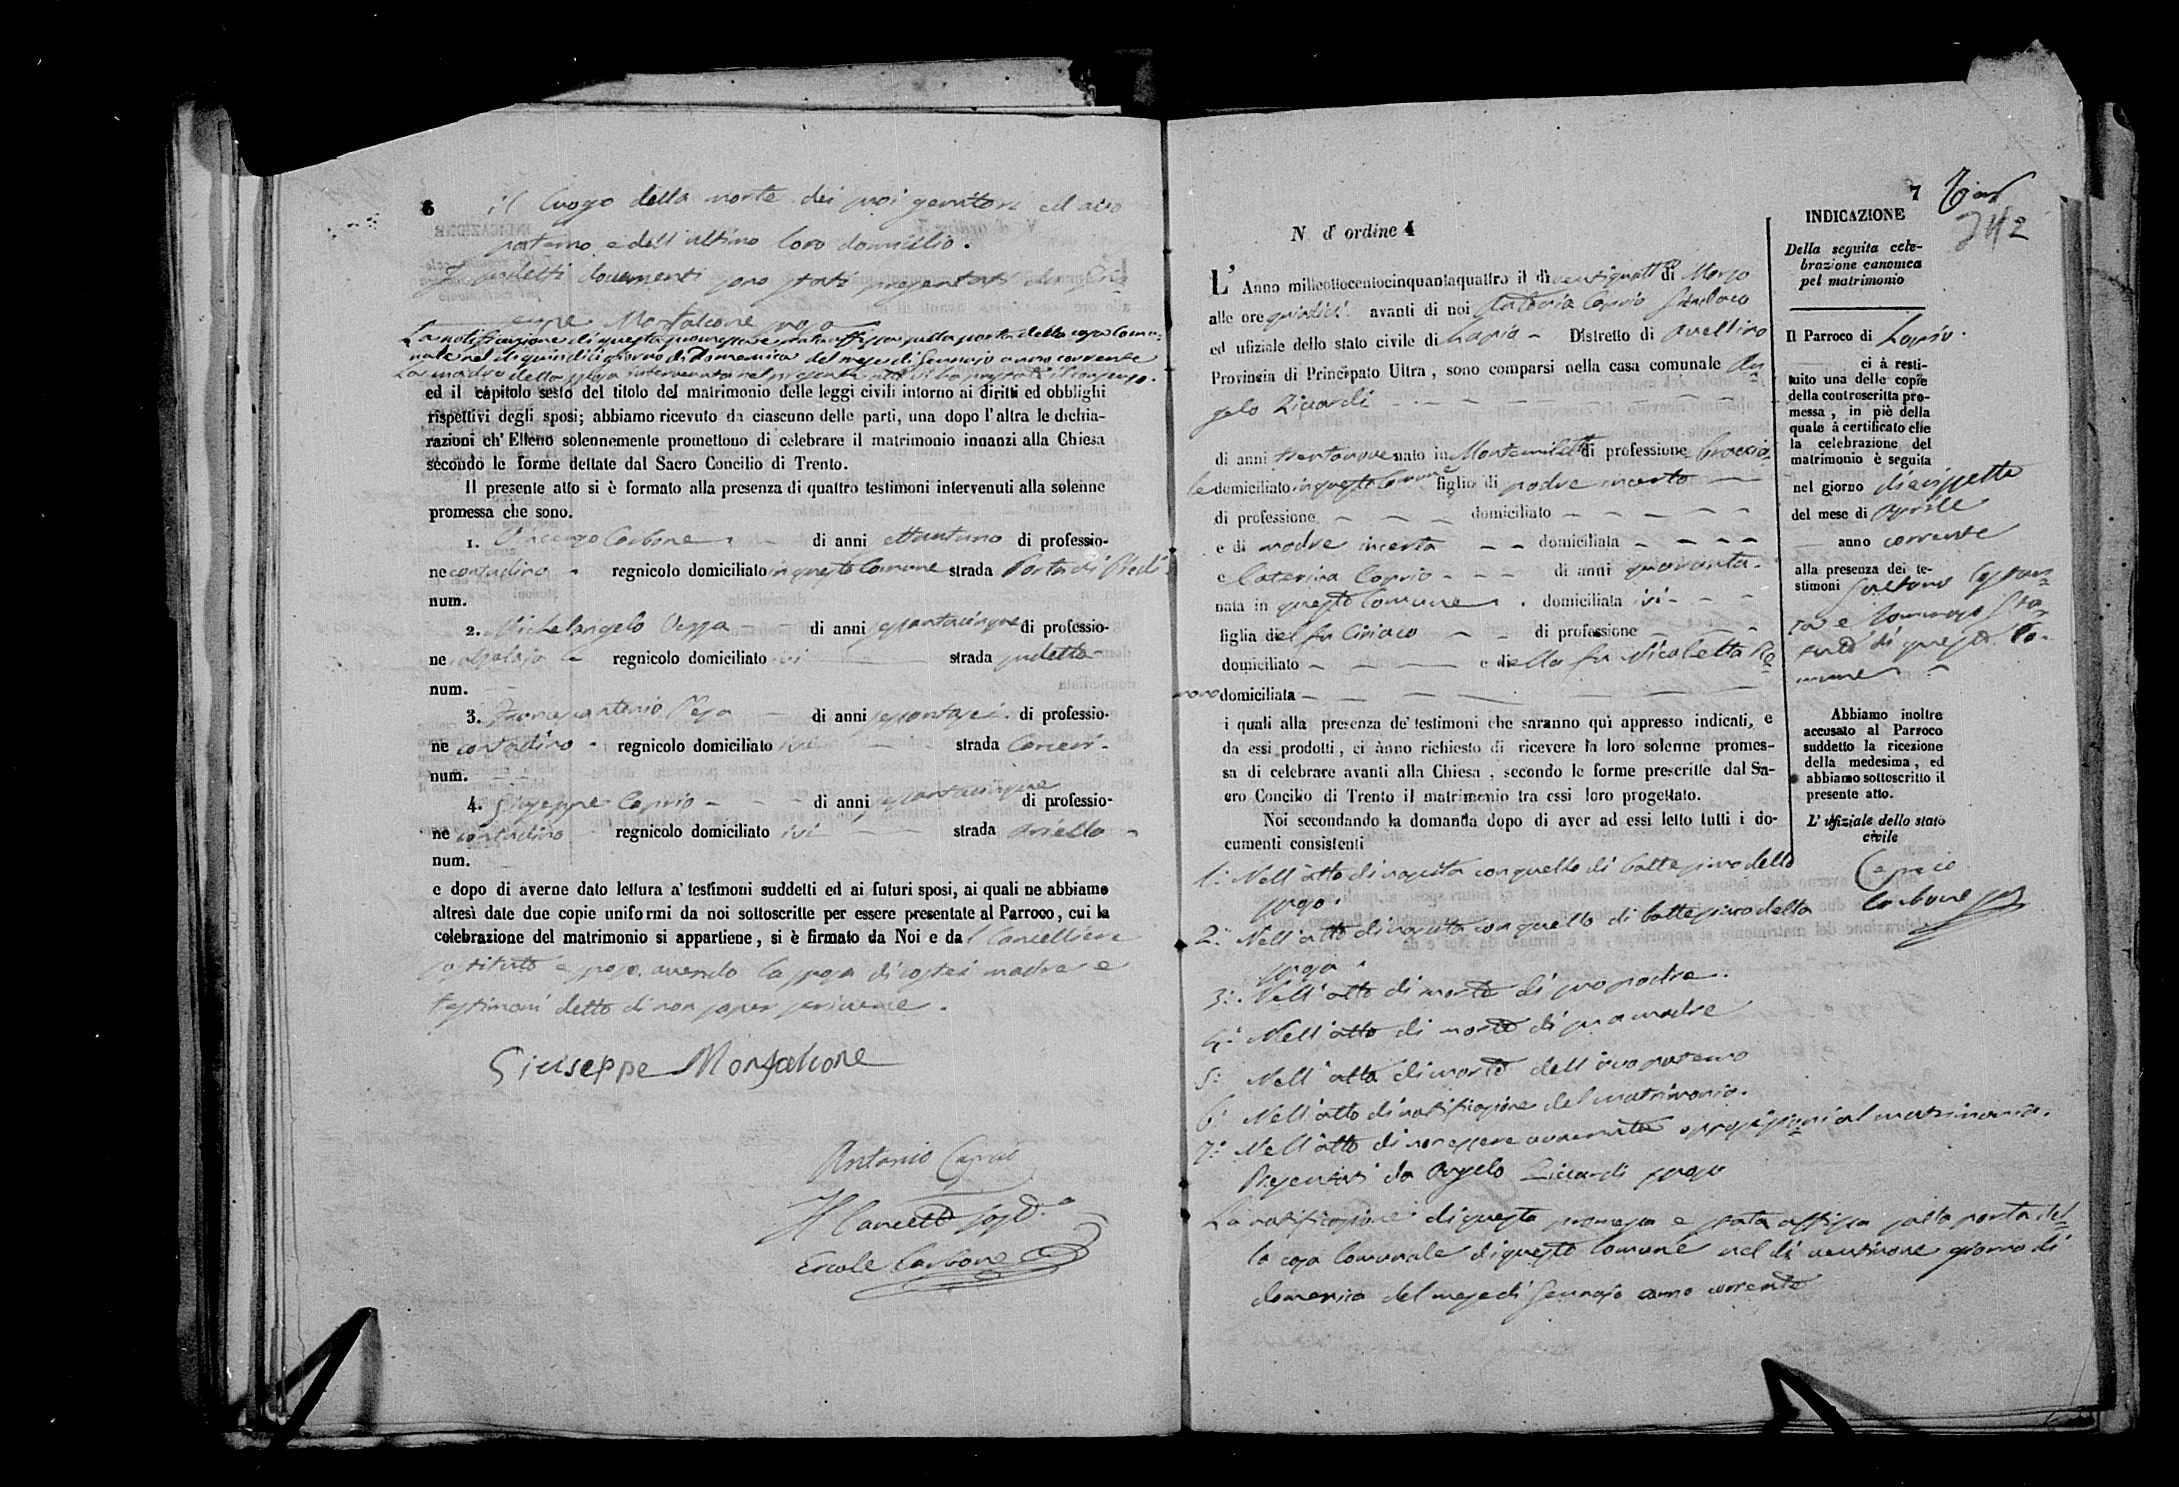 6
il luogo della morte dei suoi genitori ed avo
paterno e dell'ultimo loro domicilio.
I sudetti documenti sono stati presentati da Giu-
seppe Monfalcone sposo
La notificazione di questa promessa è stata affissa sulla porta della casa Comu-
nale nel dì quindici giorno di Domenica del mese di Gennajo anno corrente
La madre della sposa intervenuta nel presente atto vi ha prestato il consenso.
ed il capitolo sesto del titolo del matrimonio delle leggi civili intorno ai diritti ed obblighi
rispettivi degli sposi; abbiamo ricevuto da ciascuno delle parti, una dopo l'altra le dichia-
razioni ch'Elleno solennemente promettono di celebrare il matrimonio innanzi alla Chiesa
secondo le forme dettate dal Sacro Concilio di Trento.
Il presente atto si è formato alla presenza di quattro testimoni intervenuti alla solenne
promessa che sono.
1. Vincenzo Carbone di anni ottantuno di professio-
ne contadino regnicolo domiciliato in questo Comune strada Porta di Piedi
num.
2. Michelangelo di anni sessantacinque di professio-
ne calzolajo regnicolo domiciliato ivi strada sudetta
num.
3. Francesantonio di anni sessantasei di professio-
ne contadino regnicolo domiciliato ivi strada
num.
4. Giuseppe Caprio di anni sessantacinque di professio-
ne contadino regnicolo domiciliato ivi strada Ariella
num.
e dopo di averne dato lettura a' testimoni suddetti ed ai futuri sposi, ai quali ne abbiamo
altresì date due copie uniformi da noi sottoscritte per essere presentate al Parroco, cui la
celebrazione del matrimonio si appartiene, si è firmato da Noi e dal Cancelliere
sostituto e sposo, avendo la sposa di costei madre e
testimoni detto di non saper scrivere.
Giuseppe Monfalcone
Antonio Caprio
Il Cancell.e sost.o
Ercole Carbone
7
242
N d' ordine 4
L'Anno milleottocentocinquantaquattro il dì ventiquattro di Marzo
alle ore quindici avanti di noi Caprio Sindaco
ed ufiziale dello stato civile di Lapio Distretto di Avellino
Provincia di Principato Ultra, sono comparsi nella casa comunale An-
gelo Ziccardi
di anni trentanove nato in Montemiletto di professione braccia-
le domiciliato in questo Comune figlio di padre incerto
di professione domiciliato
e di madre incerta domiciliata
e Caterina Caprio di anni quaranta
nata in questo Comune domiciliata ivi
figlia del fu Ciriaco di professione
domiciliato e della fu Nicoletta Ro-
mano domiciliata
i quali alla presenza de' testimoni che saranno quì appresso indicati, e
da essi prodotti, ci ànno richiesto di ricevere la loro solenne promes-
sa di celebrare avanti alla Chiesa, secondo le forme prescritte dal Sa-
cro Concilio di Trento il matrimonio tra essi loro progettato.
Noi secondando la domanda dopo di aver ad essi letto tutti i do-
cumenti consistenti
1.° Nell'atto di nascita con quello di battesimo dello
sposo.
2.° Nell'atto di nascita con quello di battesimo della
sposa.
3.° Nell'atto di morte di suo padre.
4.° Nell'atto di morte di sua madre
5.° Nell'atto di morte dell'avo paterno
6.° Nell'atto di notificazione del matrimonio.
7.° Nell'atto di non essere avvenuta opposizioni al matrimonio.
Presentati da Angelo Ziccardi sposo
La notificazione di questa promessa è stata affissa sulla porta del-
la casa Comunale di questo Comune nel dì ventinove giorno di
domenica del mese di Gennajo anno corrente
INDICAZIONE
Della seguita cele-
brazione canonica
pel matrimonio
Il Parroco di Lapio.
ci à resti-
tuito una delle copie
della controscritta pro-
messa, in piè della
quale à certificato che
la celebrazione del
matrimonio è seguita
nel giorno diecissette
del mese di Aprile
anno corrente
alla presenza dei te-
stimoni Gaetano
e Tommaso
di questo Co-
mune
Abbiamo inoltre
accusato al Parroco
suddetto la ricezione
della medesima, ed
abbiamo sottoscritto il
presente atto.
L' ufiziale dello stato
civile
Caprio
Carbone